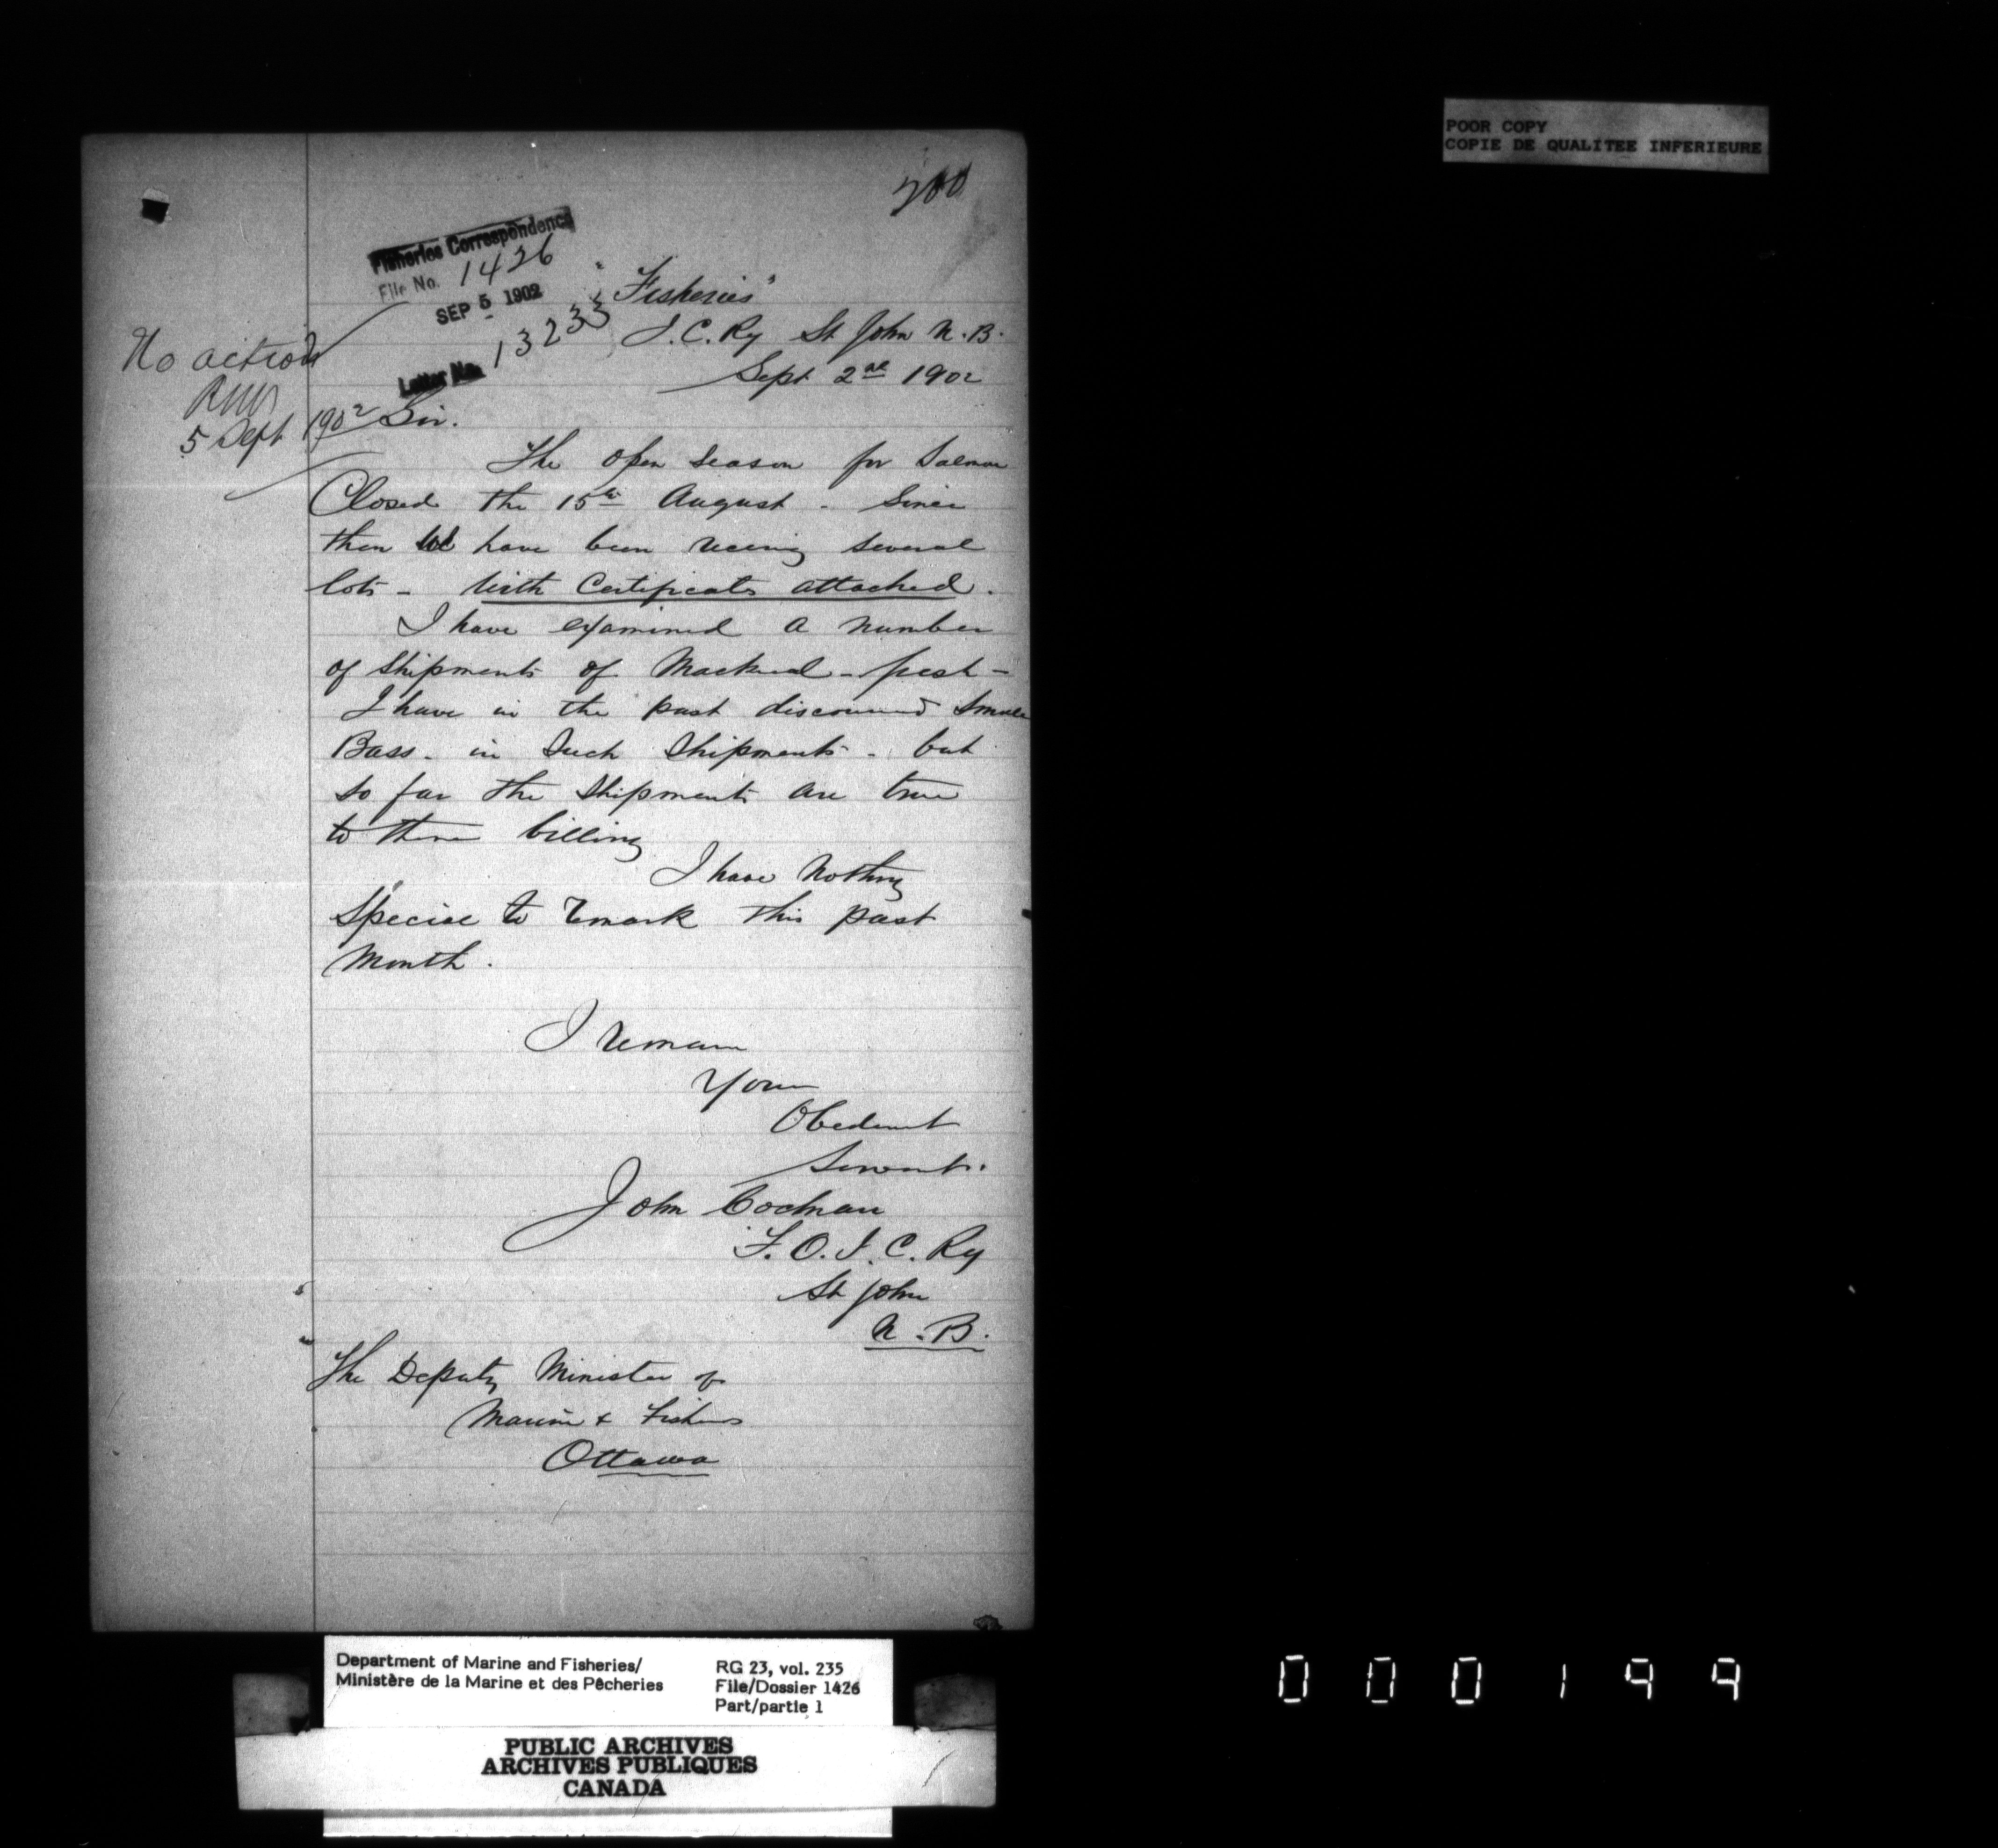 POOR COPY
COPIE DE QUALITEE INFERIEURE
200
Fisheries Correspondence
File No. 1426
SEP 5 1902
Letter No. 13233
No action
5 Sept 1902
"Fisheries"
I. C. Ry St John N. B.
Sept 2nd 1902
Sir.
The open season for Salmon
Closed the 15th August - Since
then we have been receiving several
lots - with Certificates attached.
I have examined a number
of shipments of Mackerel - fresh -
I have in the past discovered small
Bass - in such shipments - but
so far the shipments are true
to there billing
I have nothing
special to remark this past
Month.
I remain
Your
Obedient
Servant.
John Cochran
F. O. I. C. Ry
St John
N. B.
The Deputy Minister of
Marine & Fisheries
Ottawa
Department of Marine and Fisheries/
Ministère de la Marine et des Pêcheries
RG 23, vol. 235
File/Dossier 1426
Part/partie 1
PUBLIC ARCHIVES
ARCHIVES PUBLIQUES
CANADA
000199